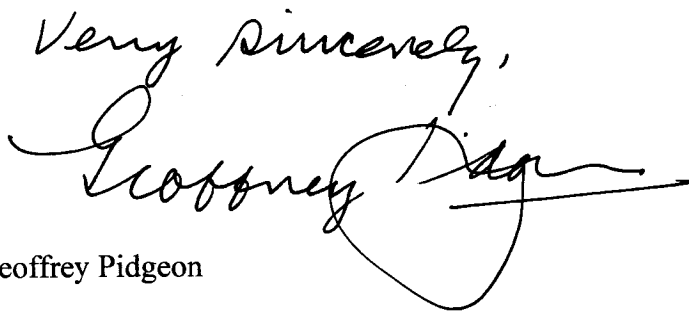 Very sincerely,
Geoffrey Pidgeon
eoffrey Pidgeon